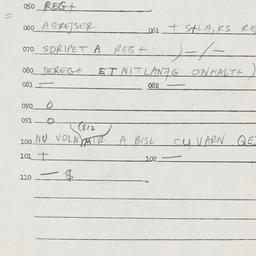 050 REG+
060 AGREJSER 061 + S+LA,KS RE
070 SDRIPET A REG+ )-/-
080 DEREG+ ETNITLANTG ONHALT+)
081 — 082 —
090 0
091 0
(812
100 NU VOLN MTR A BISL CU VARN QE
101 + 102 —
110 — $